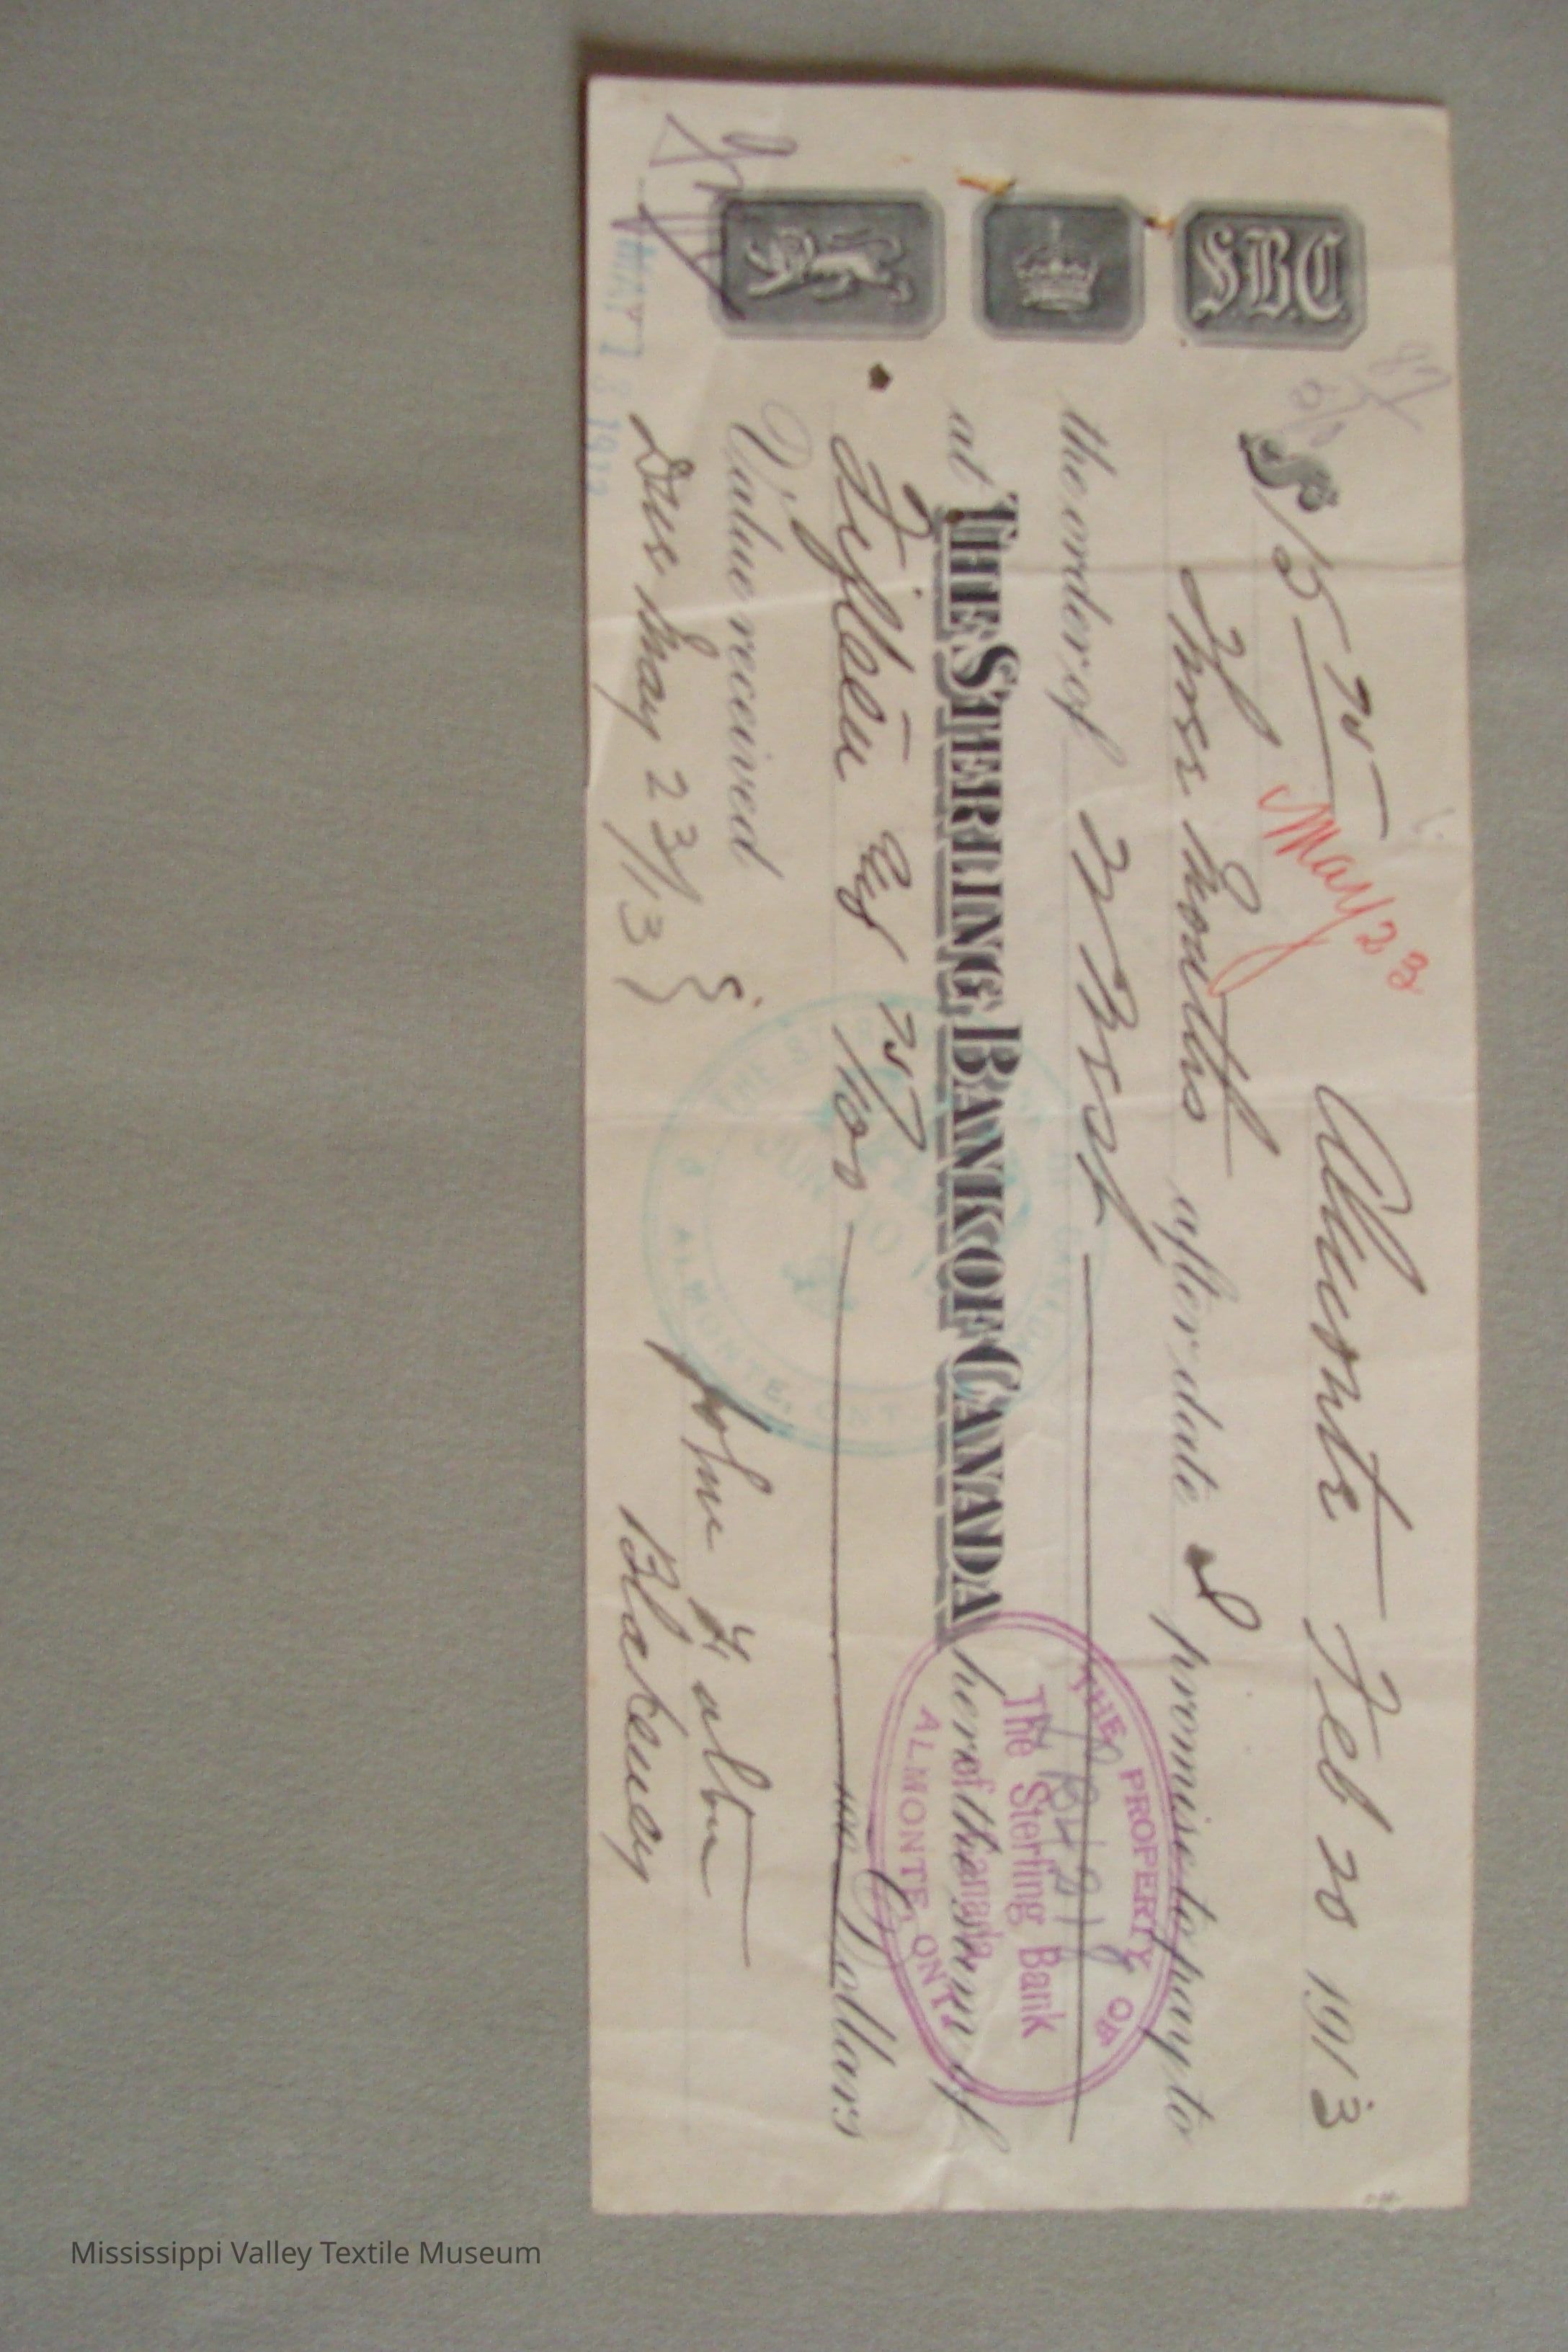 S.B.C.
$15 75/ May 23
Almonte Feb 20 1913
Three Months after date I promise to pay to
the order of W West
at THE STERLING BANK OF CANADA here the sum of
Fifteen 75/100 Dollars
Value received
Due May 23/13
John
Blakeney
THE PROPERTY OF
The Sterling Bank
of Canada
ALMONTE, ONT.
ALMONTE, ONT.
Mississippi Valley Textile Museum